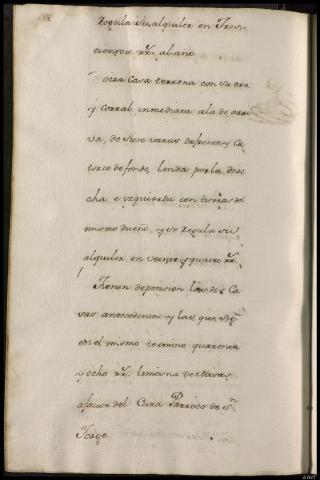 Regula su alquiler en Tres
cientos rr.s al año
otra Casa terrena con su era
y corral inmediata ala de arri
va; de siete varas de frente y Ca
torce de fondo, linda por la dere
cha e yzquierda con tierras del
mismo dueño, y se Regula su
alquiler en veinte y quatro rr.s
Tienen de pension las dos Ca
sas antecedentes y las que sig.n
en el mismo termino quarenta
y ocho rr.s limosna de Misas
a favor del Cura Parroco de S.n
Jorge